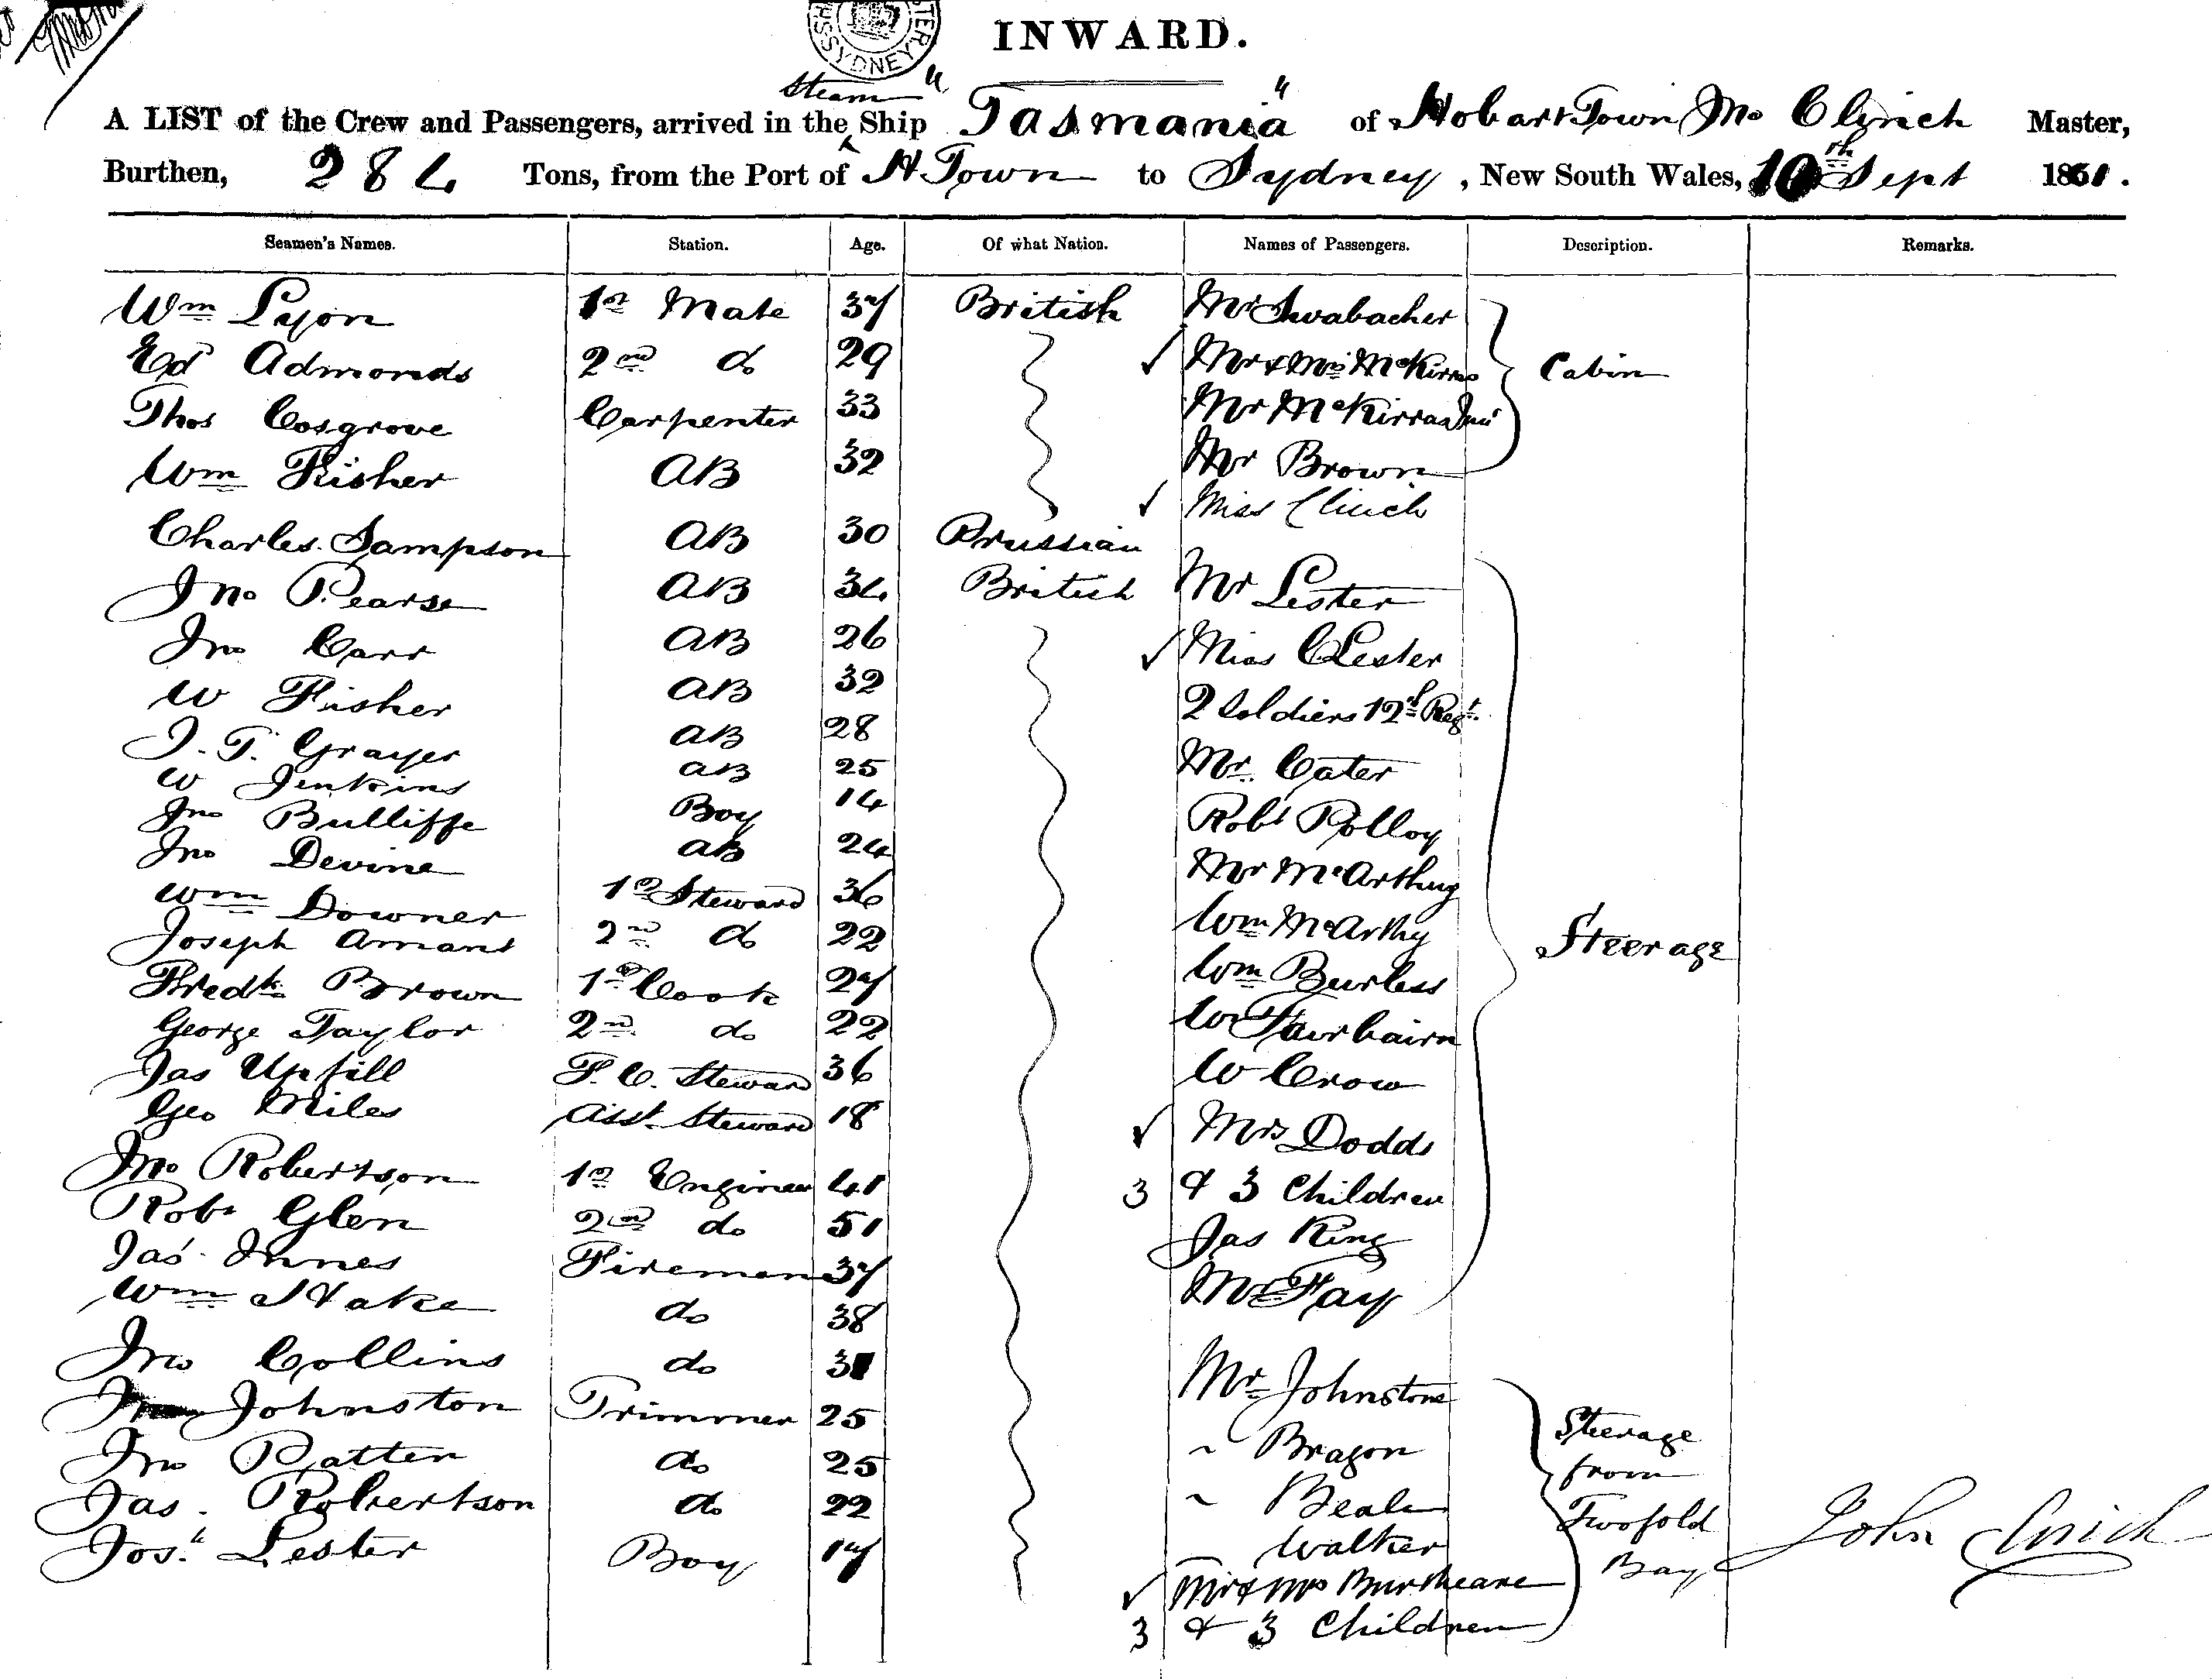 INWARD.
Steam
A LIST of the Crew and Passengers, arrived in the Ship "Tasmania" of Hobart Town Jno Clinch Master,
Burthen, 284 Tons, from the Port of H Town to Sydney, New South Wales, 10th Sept 1861.
Seamen's Names. Station. Age. Of what Nation. Names of Passengers. Description. Remarks.
Wm Lyon 1st Mate 37 British Mr Swabacher
Ed Admonds 2nd do 29 Mr & Mrs McKirras Cabin
Thos Cosgrove Carpenter 33 Mr McKirras Junr
Wm Fisher AB 32 Mr Brown
Miss Clinch
Charles Sampson AB 30 Prussian
Jno Pearse AB 34 British Mr Lester
Jno Carr AB 26 Miss C Lester
W Fisher AB 32 2 Soldiers 12th Regt
J. T. Grayer AB 28
W Jenkins AB 25 Mr Cater
Jno Bulliffe Boy 14 Robt Polloy
Jno Devine AB 24 Mr McArthy
Wm Downer 1st Steward 36 Wm McArthy
Joseph Amans 2nd do 22 Steerage
Fredk Brown 1st Cook 27 Wm Burless
George Taylor 2nd do 22 W Fairbairn
Jas Upfill F. C. Steward 36 W Crow
Geo Miles Asst Steward 18 Mrs Dodds
Jno Robertson 1st Engineer 41 3 & 3 Children
Robt Glen 2nd do 51 Jas King
Jas Innes Fireman 37 Mr Fay
Wm Hake do 38
Jno Collins do 31 Mr Johnstone
Johnston Trimmer 25 Steerage
Jno Patten do 25 " Bragon from
Jas. Robertson do 22 " Beale Twofold
Josh Lester Boy 17 Walker Bay John Clinch
Mr & Mrs
3 & 3 Children